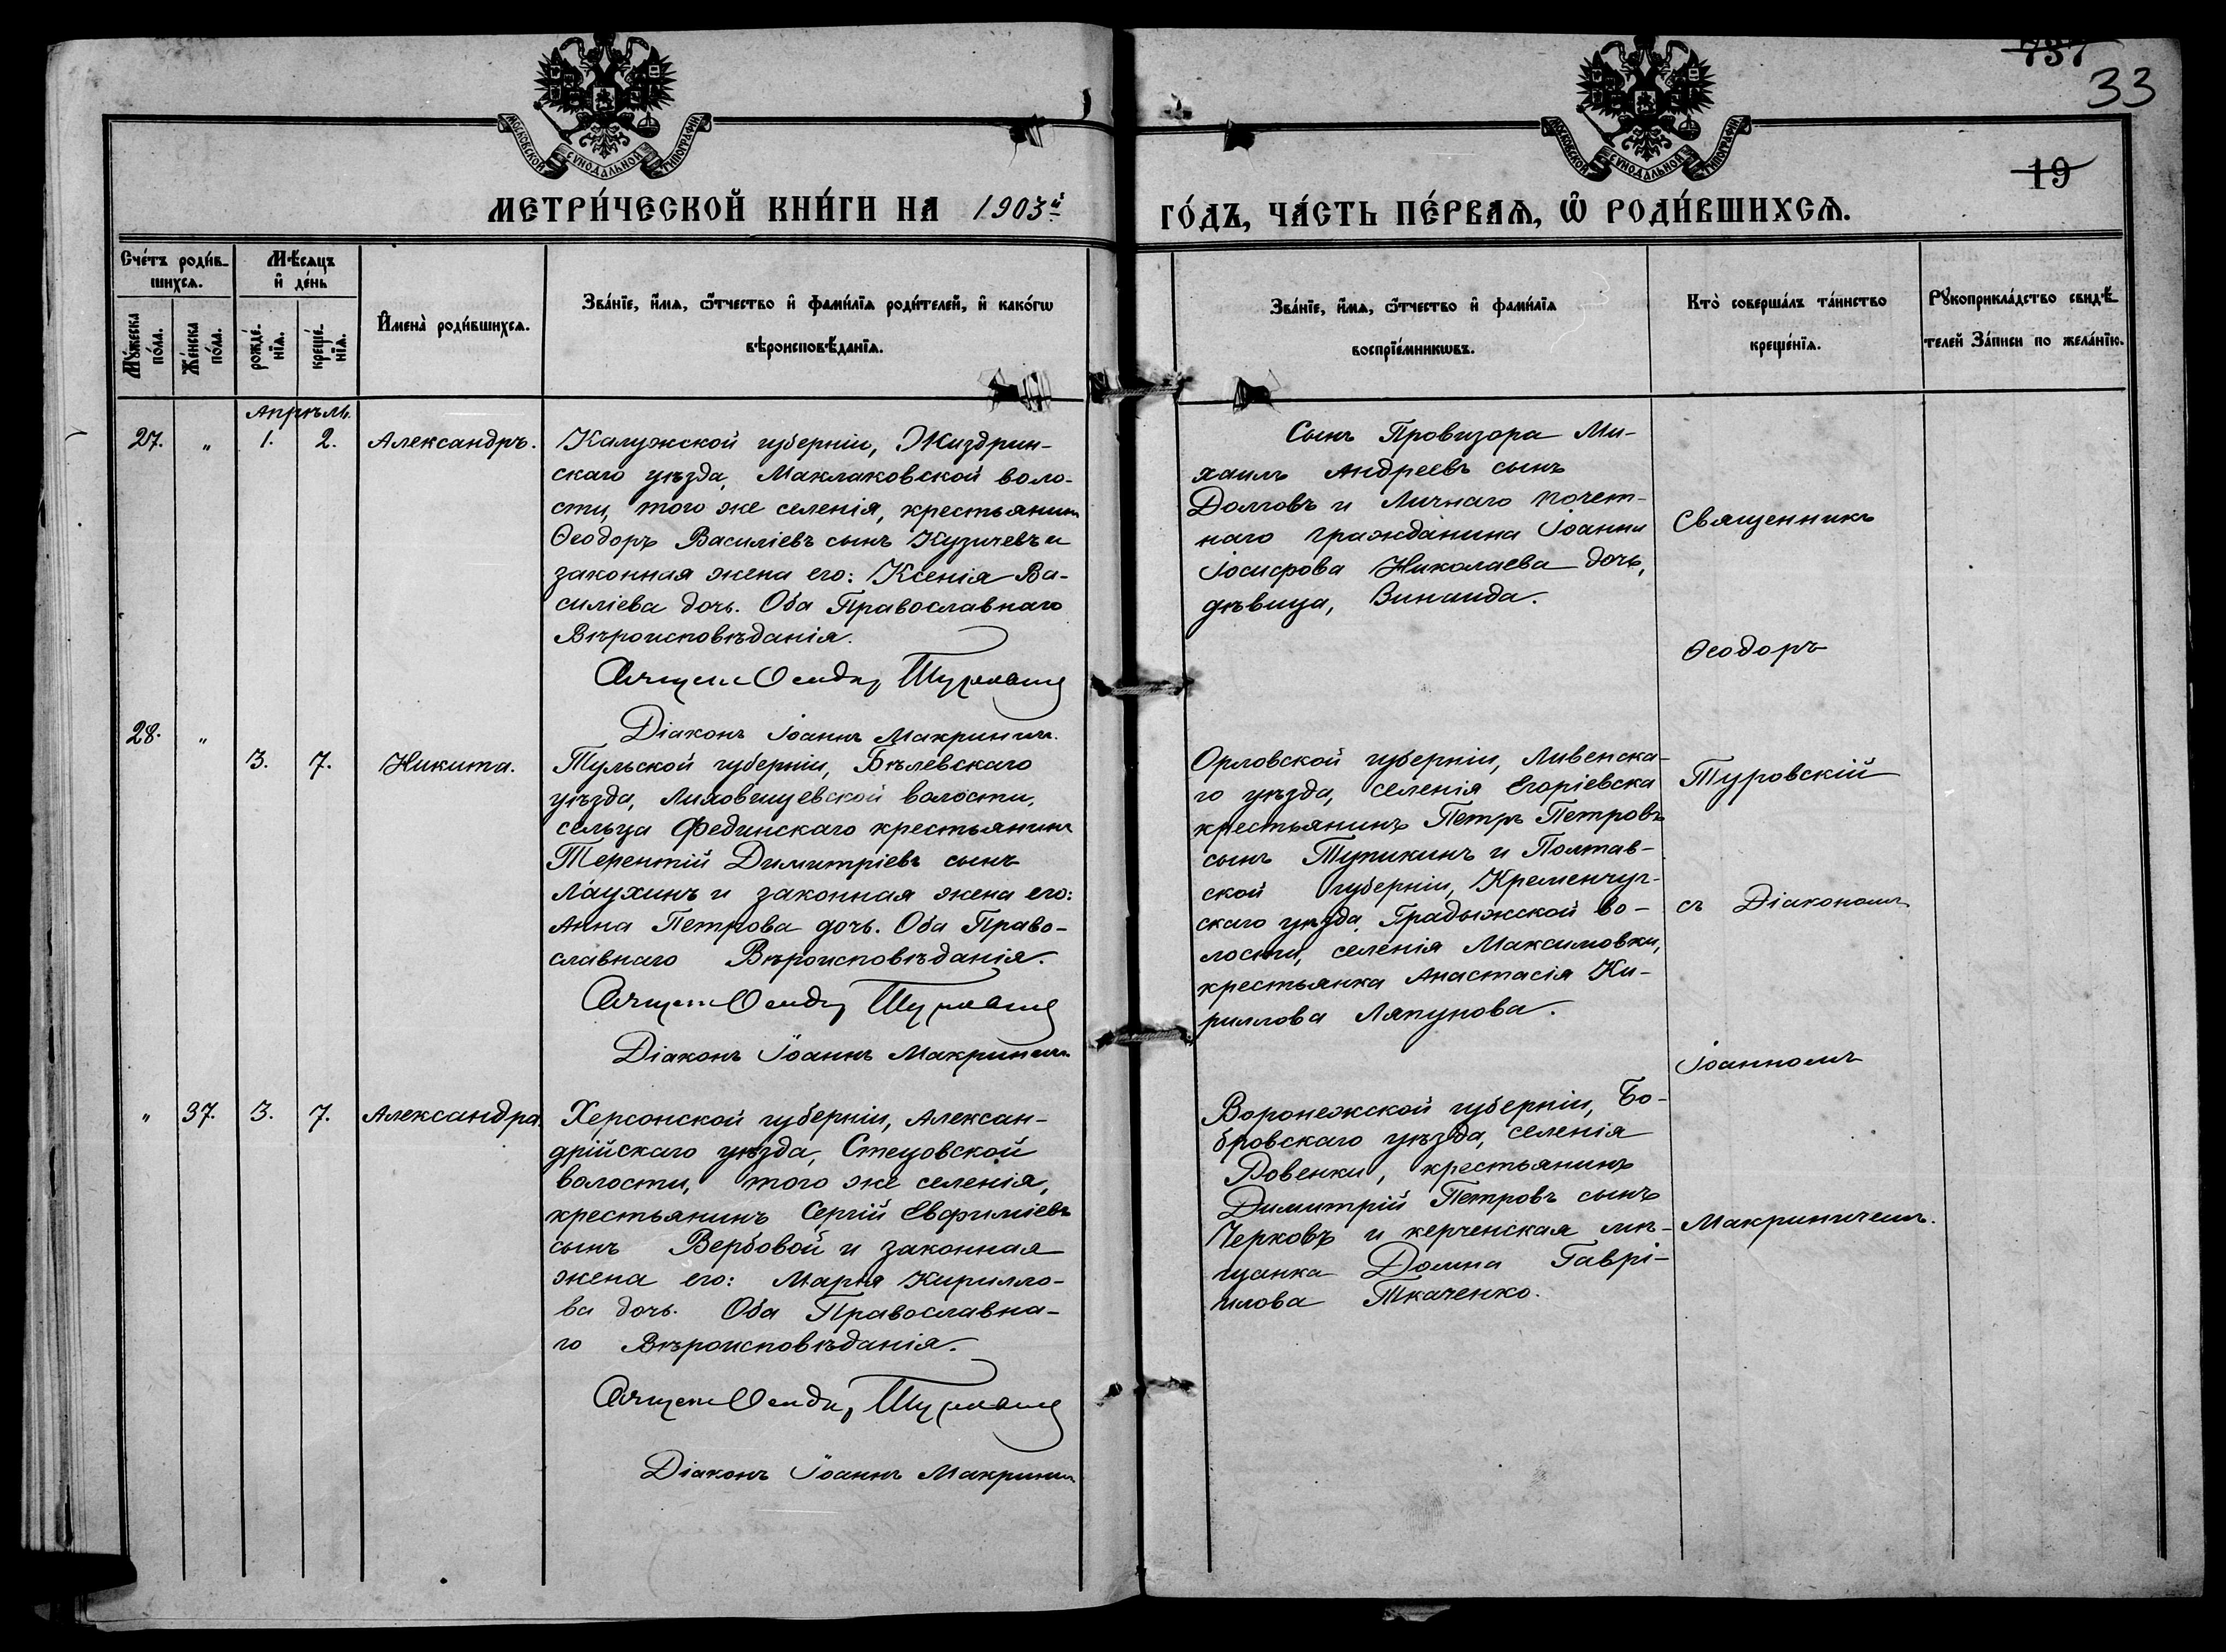 737
33
19
МОСКОВСКОЙ СѴНОДАЛЬНОЙ ТИПОГРАФІИ
МОСКОВСКОЙ СѴНОДАЛЬНОЙ ТИПОГРАФІИ
МЕТРИ́ЧЕСКОЙ КНИ́ГИ НА 1903й
ГО́ДЪ, ЧА́СТЬ ПЕ́РВАѦ, Ѡ҆ РОДИ́ВШИХСѦ.
Сче́тъ роди́в-
шихсѧ.
Мꙋ́жеска
по́ла.
Же́нска
по́ла.
Мѣ́сѧцъ
и҆ де́нь
рожде́-
нїѧ.
креще́-
нїѧ.
И҆мена̀ роди́вшихсѧ.
Зва́нїе, и҆́мѧ, ѻ҆́тчество и҆ фами́лїѧ роди́телей, и҆ како́гѡ
вѣроисповѣ́данїѧ.
Зва́нїе, и҆́мѧ, ѻ҆́тчество и҆ фами́лїѧ
воспрїе́мникѡвъ.
Кто̀ соверша́лъ та́инство
креще́нїѧ.
Рꙋкоприкла́дство свидѣ́-
телей За́писи по жела́нїю.
Апрѣль.
27. „ 1. 2. Александръ.
Калужской губерніи, Жиздрин-
скаго уѣзда, Маклаковской воло-
сти, того же селенія, крестьянинъ
Ѳеодоръ Василіевъ сынъ Кузичевъ и
законная жена его: Ксенія Ва-
силіева дочь. Оба Православнаго
Вѣроисповѣданія.
Діаконъ Іоаннъ Макринич.
Сынъ Провизора Ми-
хаилъ Андреевъ сынъ
Долговъ и Личнаго почет-
наго гражданина Іоанна
Іосифова Николаева дочь,
дѣвица, Зинаида.
28. „ 3. 7. Никита.
Тульской губерніи, Бѣлевскаго
уѣзда, волости,
сельца Фединскаго крестьянинъ
Терентій Димитріевъ сынъ
Лаухинъ и законная жена его:
Анна Петрова дочь. Оба Право-
славнаго Вѣроисповѣданія.
Діаконъ Іоаннъ Макринич.
Орловской губерніи, Ливенска-
го уѣзда, селенія Егоріевска
крестьянинъ Петръ Петровъ
сынъ Тупикинъ и Полтав-
ской губерніи, Кременчуг-
скаго уѣзда, Градыжской во-
лости, селенія Максимовки,
крестьянка Анастасія Ки-
риллова Ляпунова.
„ 37. 3. 7. Александра.
Херсонской губерніи, Алексан-
дрійскаго уѣзда, Стецовской
волости, того же селенія,
крестьянинъ Сергій Евфиміевъ
сынъ Вербовой и законная
жена его: Марія Кирилло-
ва дочь. Оба Православна-
го Вѣроисповѣданія.
Діаконъ Іоаннъ Макринич
Воронежской губерніи, Бо-
бровскаго уѣзда, селенія
крестьянинъ
Димитрій Петровъ сынъ
Черковъ и керченская мѣ-
щанка Домна Гаврі-
илова Ткаченко.
Священникъ
Ѳеодоръ
Туровскій
съ Діакономъ
Іоанномъ
Макриничемъ.